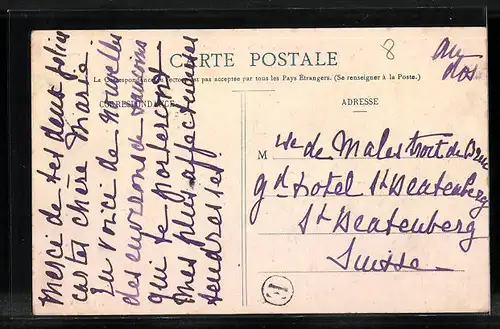 CARTE POSTALE
8
au
dos
La Correspondance au recto n'est pas acceptée par tous les Pays Etrangers. (Se renseigner à la Poste.)
CORRESPONDANCE
ADRESSE
Merci de tes deux jolies
cartes chère Marie
En voici de nouvelles
des environs de
qui te porteront
mes plus affectueuses
tendresses!
M
de Malestroit de Bruc
gd hotel St Beatenberg
St Beatenberg
Suisse
E